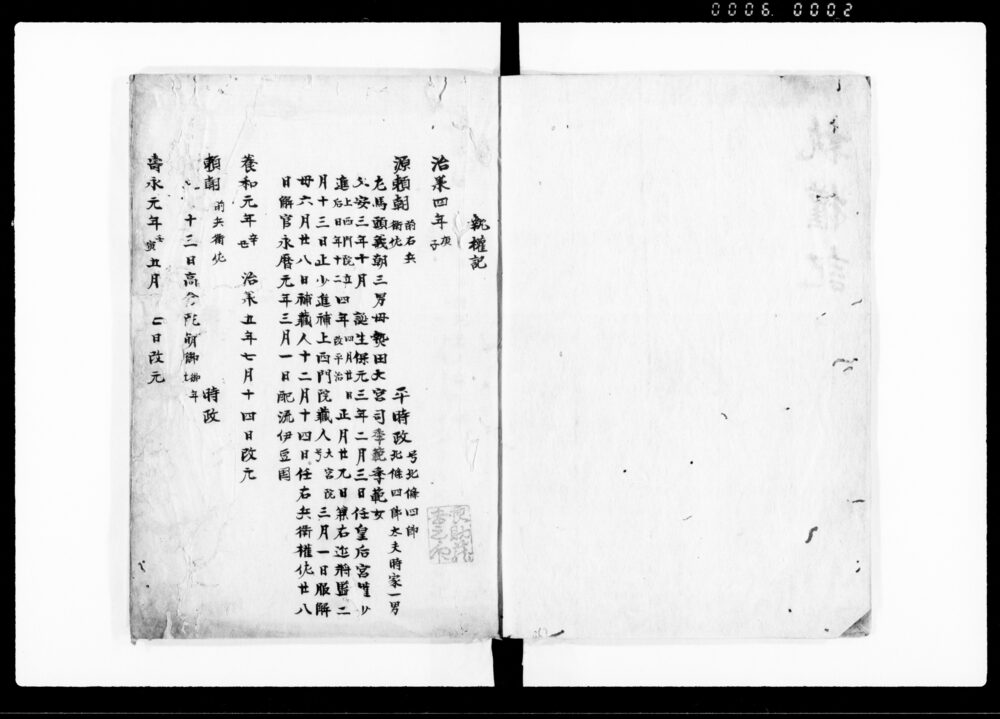 0006 0002
執權記
治承四年庚子
源頼朝 前右兵衛佐 平時政 号北條四郎 北條四郎大夫時家一男
左馬頭義朝三男母熱田大宮司季範季範女
久安三年十月 誕生保元三年二月三日任皇后宮權少
進 上西門院立后日年十二 四年 四月廿日改平治 正月廿九日兼右近將監二
月十三日止少進補上西門院蔵人 号大宮院 三月一日服解
六月廿八日補蔵人十二月十四日任右兵衛權佐廿八
日解官永暦元年三月一日配流伊豆国
養和元年辛丑 治承五年七月十四日改元
頼朝 前兵衛佐 時政
十三日高倉院崩御
壽永元年壬寅五月 七日改元